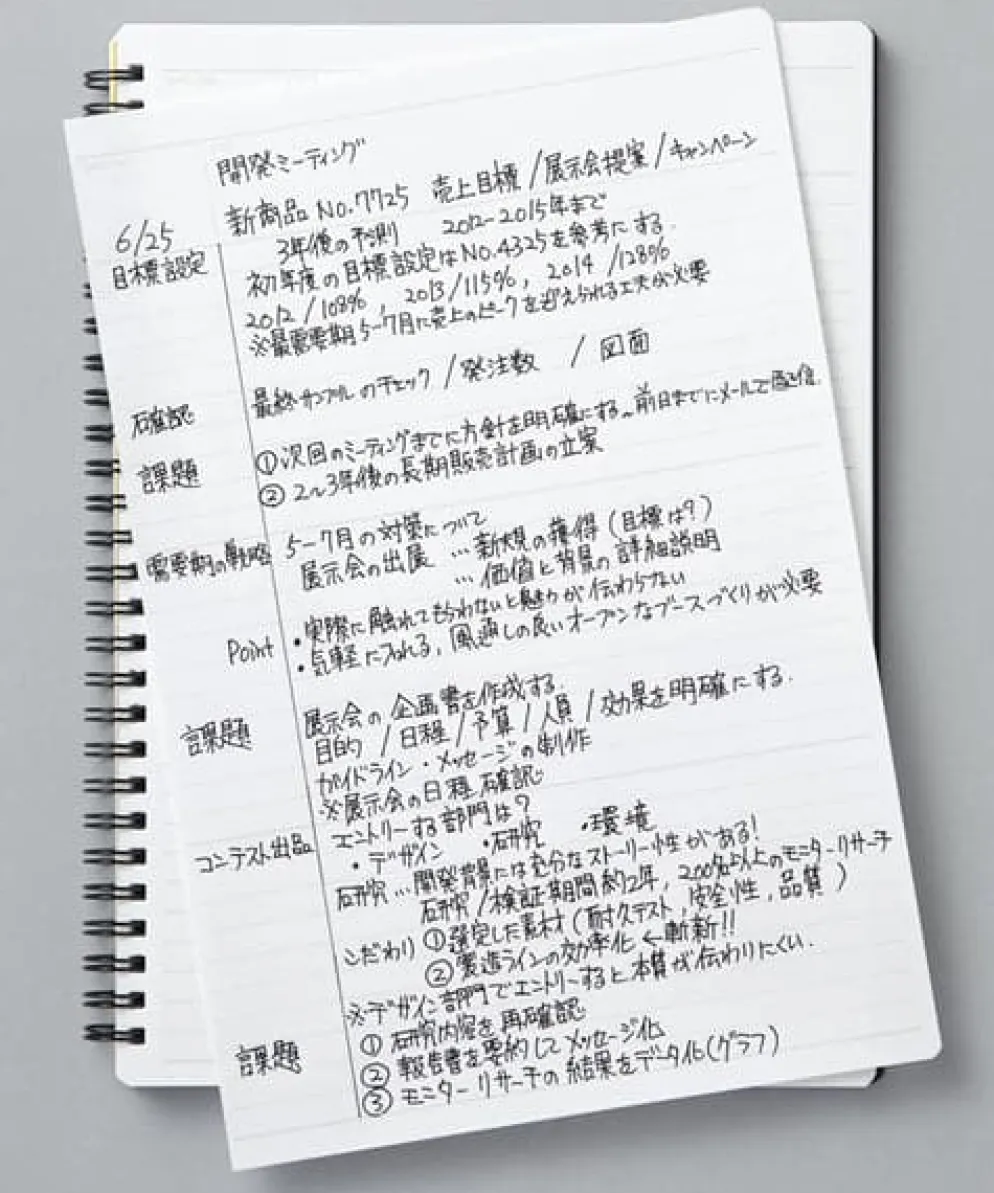 開発ミーティング
6/25 新商品 No.7725 売上目標 / 展示会提案 / キャンペーン
目標設定 3年後の予測 2012-2015年まで
初年度の目標設定はNo.4325を参考にする.
2012 / 108%, 2013 / 115%, 2014 / 128%
※最需要期5-7月に売上のピークを迎えられる工夫が必要
確認 最終サンプルのチェック / 発注数 / 図面
課題 ① 次回のミーティングまでに方針を明確にする。前日までにメールで配信.
② 2~3年後の長期販売計画の立案
需要期の戦略 5-7月の対策について
展示会の出展 … 新規の獲得 (目標は?)
… 価値と背景の詳細説明
Point ・実際に触れてもらわないと魅力が伝わらない
・気軽に入れる, 風通しの良いオープンなブースづくりが必要
課題 展示会の企画書を作成する.
目的 / 日程 / 予算 / 人員 / 効果を明確にする.
ガイドライン・メッセージの制作
※展示会の日程確認
コンテスト出品 エントリーする部門は?
・デザイン ・研究 ・環境
研究 … 開発背景には充分なストーリー性がある!
研究 / 検証期間約2年, 200名以上のモニターリサーチ
こだわり ① 選定した素材 (耐久テスト, 安全性, 品質)
② 製造ラインの効率化 ← 斬新!!
※デザイン部門でエントリーすると本質が伝わりにくい.
課題 ① 研究内容を再確認
② 報告書を要約してメッセージ化
③ モニターリサーチの結果をデータ化(グラフ)